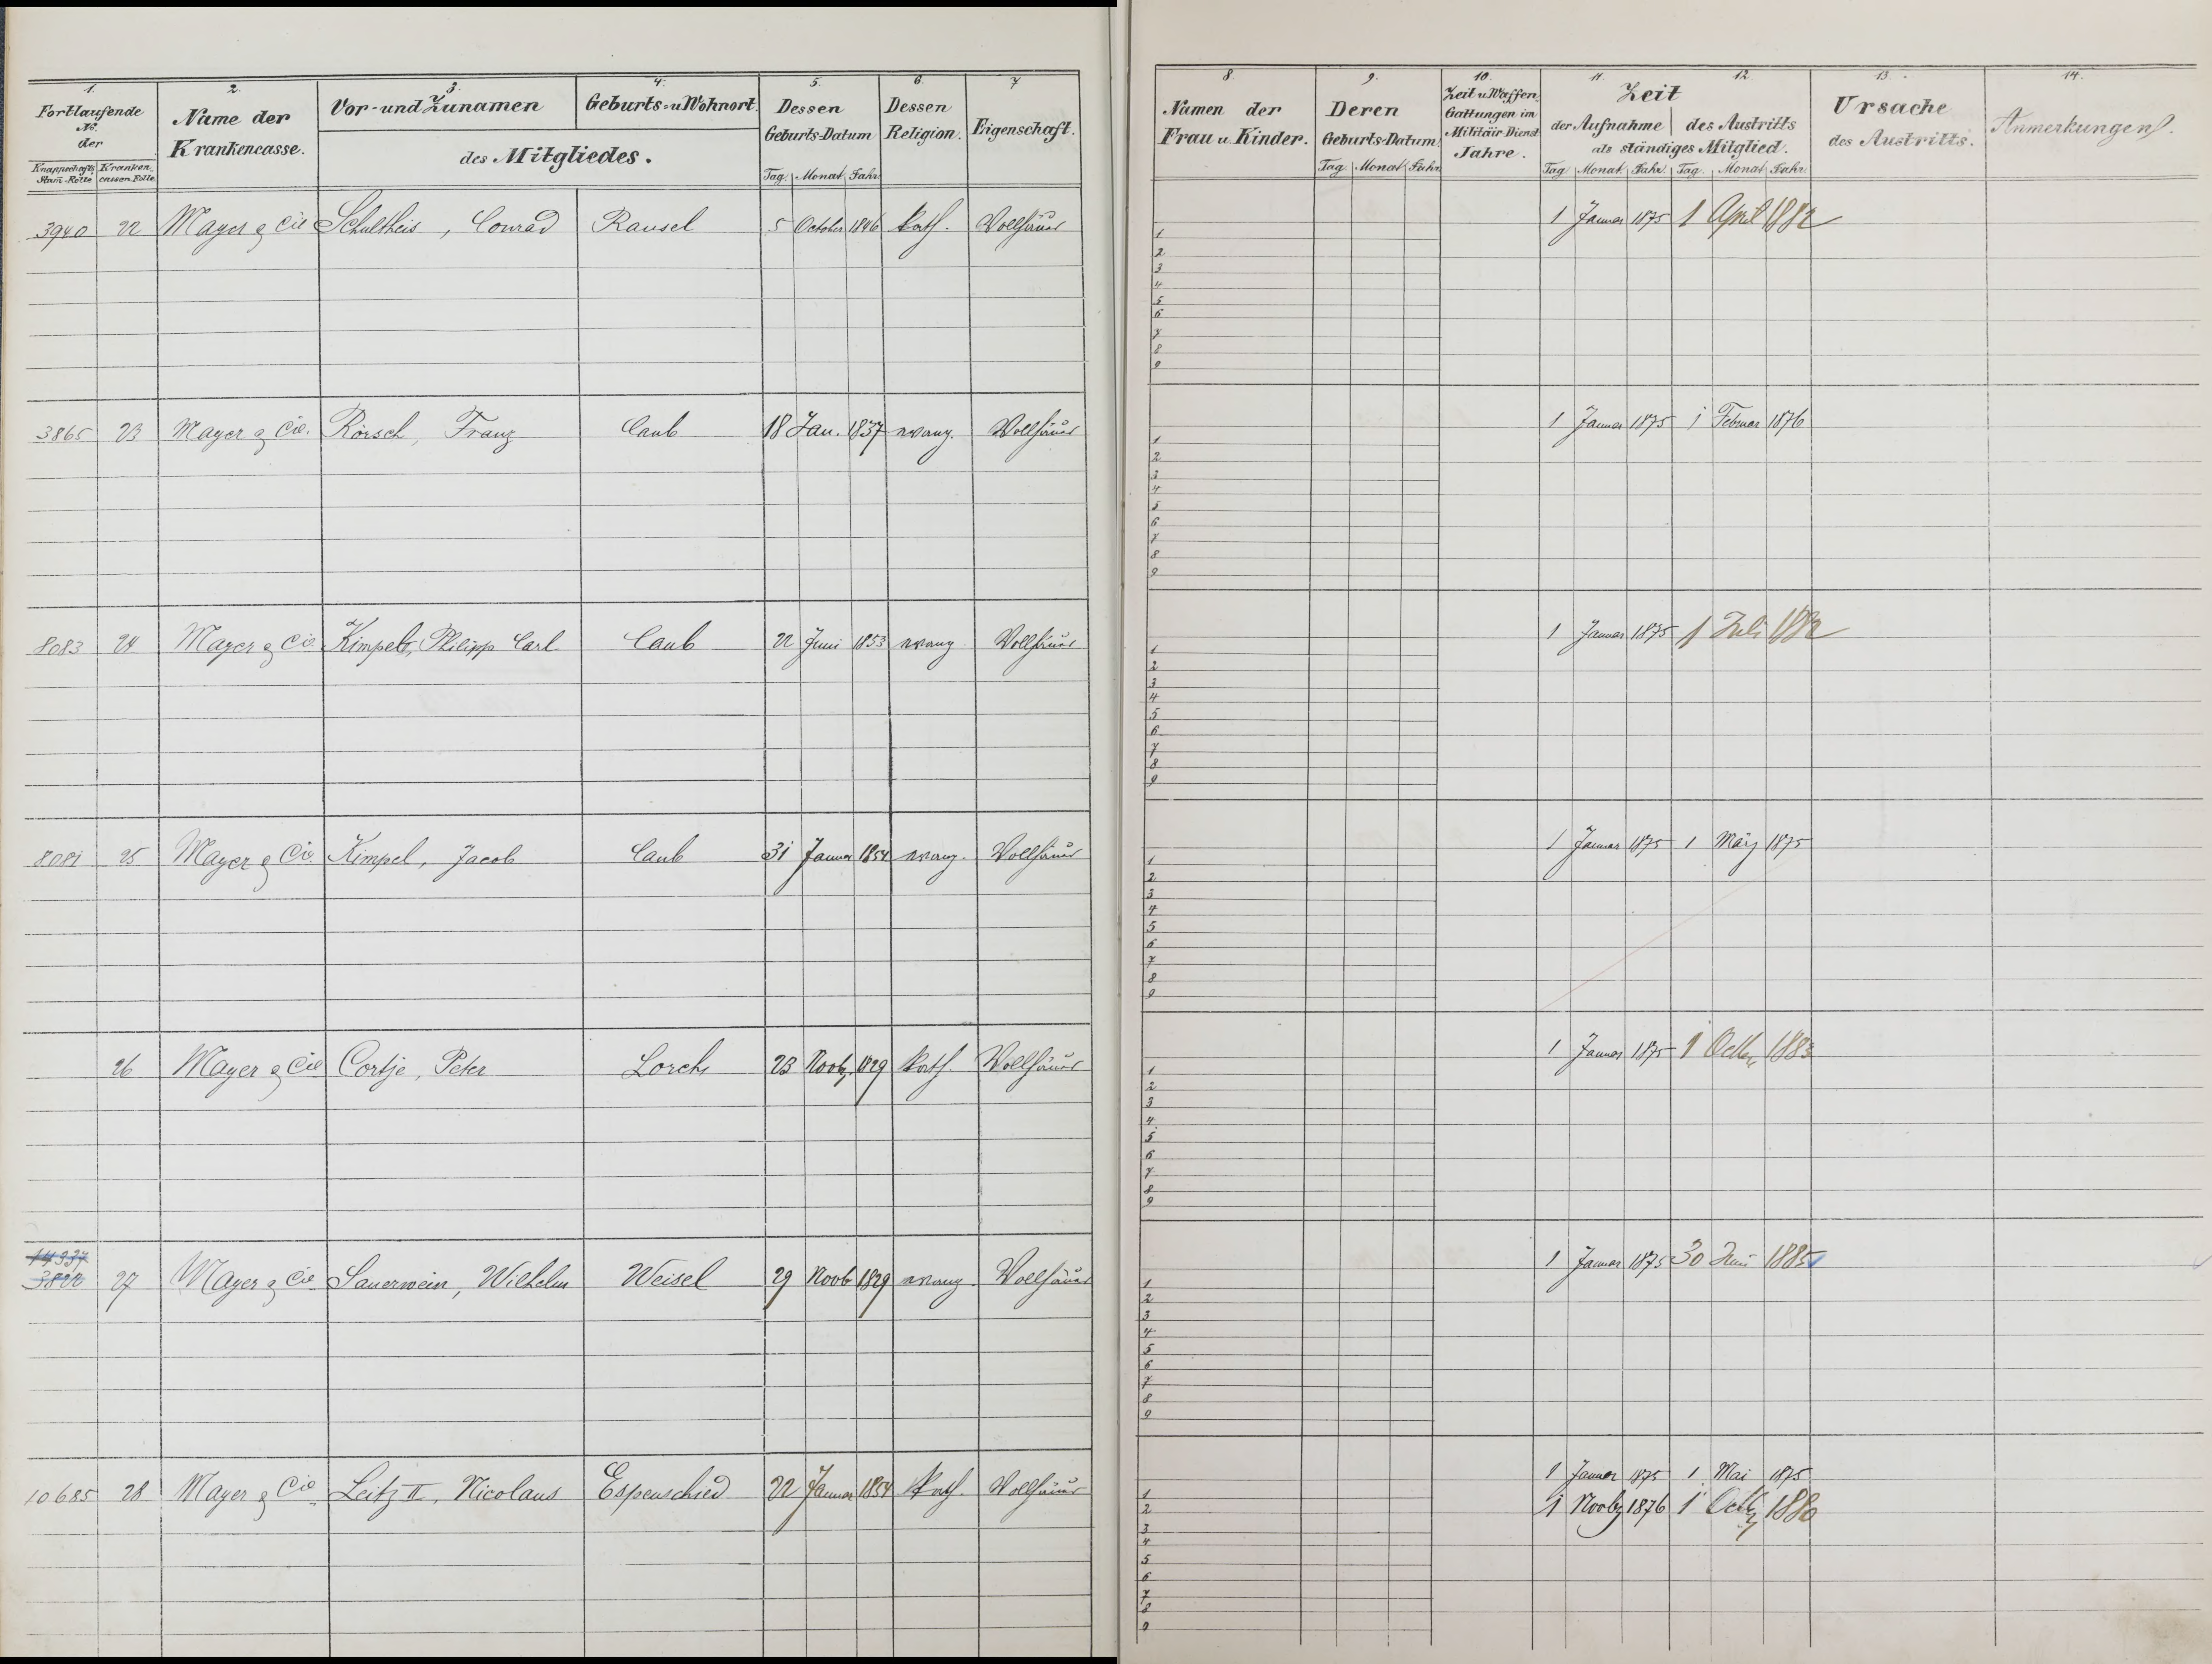 1. 2. 3. 4. 5. 6. 7
Fortlaufende No. der
Knappschafts Stam-Rolle
Kranken-cassen-Rolle
Name der Krankencasse.
Vor- und Zunamen
Geburts- u Wohnort.
des Mitgliedes.
Dessen Geburts-Datum
Tag. Monat Jahr
Dessen Religion.
Eigenschaft.
3940 22 Mayer & Cie Schultheis, Conrad Ransel 5 October 1846 kath. Vollhäuer
3865 23 Mayer & Cie. Rörsch, Franz Caub 18 Jan. 1837 evang. Vollhäuer
8083 24 Mayer & Cie Kimpel, Philipp Carl Caub 22 Juni 1853 evang. Vollhäuer
8081 25 Mayer & Cie. Kimpel, Jacob Caub 31 Januar 1854 evang. Vollhäuer
26 Mayer & Cie Cortje, Peter Lorch 23 Novb. 1829 kath. Vollhäuer
14937
3822 27 Mayer & Cie Sauerwein, Wilhelm Weisel 29 Novb 1829 evang. Vollhäuer
10685 28 Mayer & Cie. Leitz II, Nicolaus Espenschied 22 Januar 1854 kath. Vollhäuer
8. 9. 10. 11. 12. 13. 14.
Namen der Frau u. Kinder.
Deren Geburts-Datum
Tag. Monat Jahr
Zeit u Waffen Gattungen im Militär-Dienst Jahre.
Zeit
der Aufnahme des Austritts
als ständiges Mitglied.
Tag Monat Jahr. Tag. Monat Jahr.
Ursache des Austritts.
Anmerkungen.
1 Januar 1875 1 April 1882
1
2
3
4
5
6
7
8
9
1 Januar 1875 1 Februar 1876
1
2
3
4
5
6
7
8
9
1 Januar 1875 1 Juli 1882
1
2
3
4
5
6
7
8
9
1 Januar 1875 1 März 1875
1
2
3
4
5
6
7
8
9
1 Januar 1875 1 Octbr 1883
1
2
3
4
5
6
7
8
9
1 Januar 1875 30 Juni 1885
1
2
3
4
5
6
7
8
9
1 Januar 1875 1. Mai 1875
1
2 1 Novbr 1876 1 Octbr 1880
3
4
5
6
7
8
9